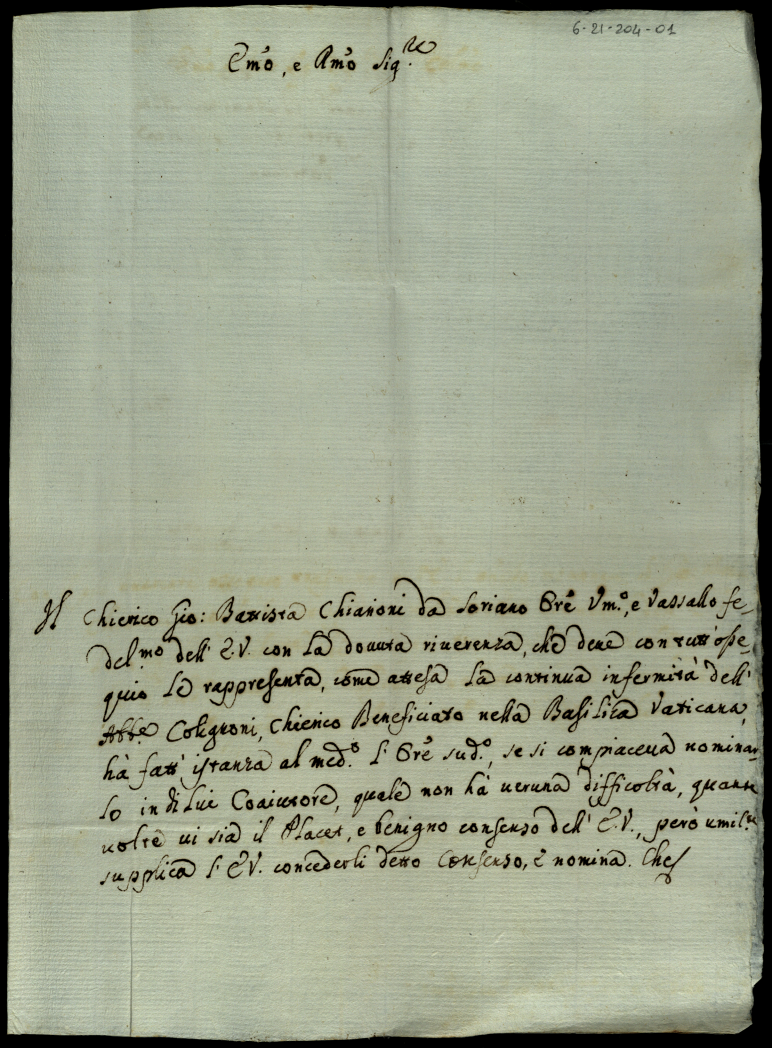 6-21-204-01
Emo, e Rmo Sig.re
Il Chierico Gio: Battista Chiarioni da Soriano Ore Vm.o, e Vassallo fe-
del.mo dell' E.V. con la douuta riuerenza, che deue con tutt' osse-
quio le rappresenta, come attesa la continua infermità dell'
Abbe Colignoni, Chierico Beneficiato nella Basilica Vaticana,
hà fatt' istanza al med.o l' Ore sud.o, se si compiaceua nominar-
lo in di lui Coaiutore, quale non hà ueruna difficoltà, quante
uolte ui sia il Placet, e benigno consenso dell' E.V., però umil.te
supplica l' E.V. concederli detto Consenso, e nomina. Che